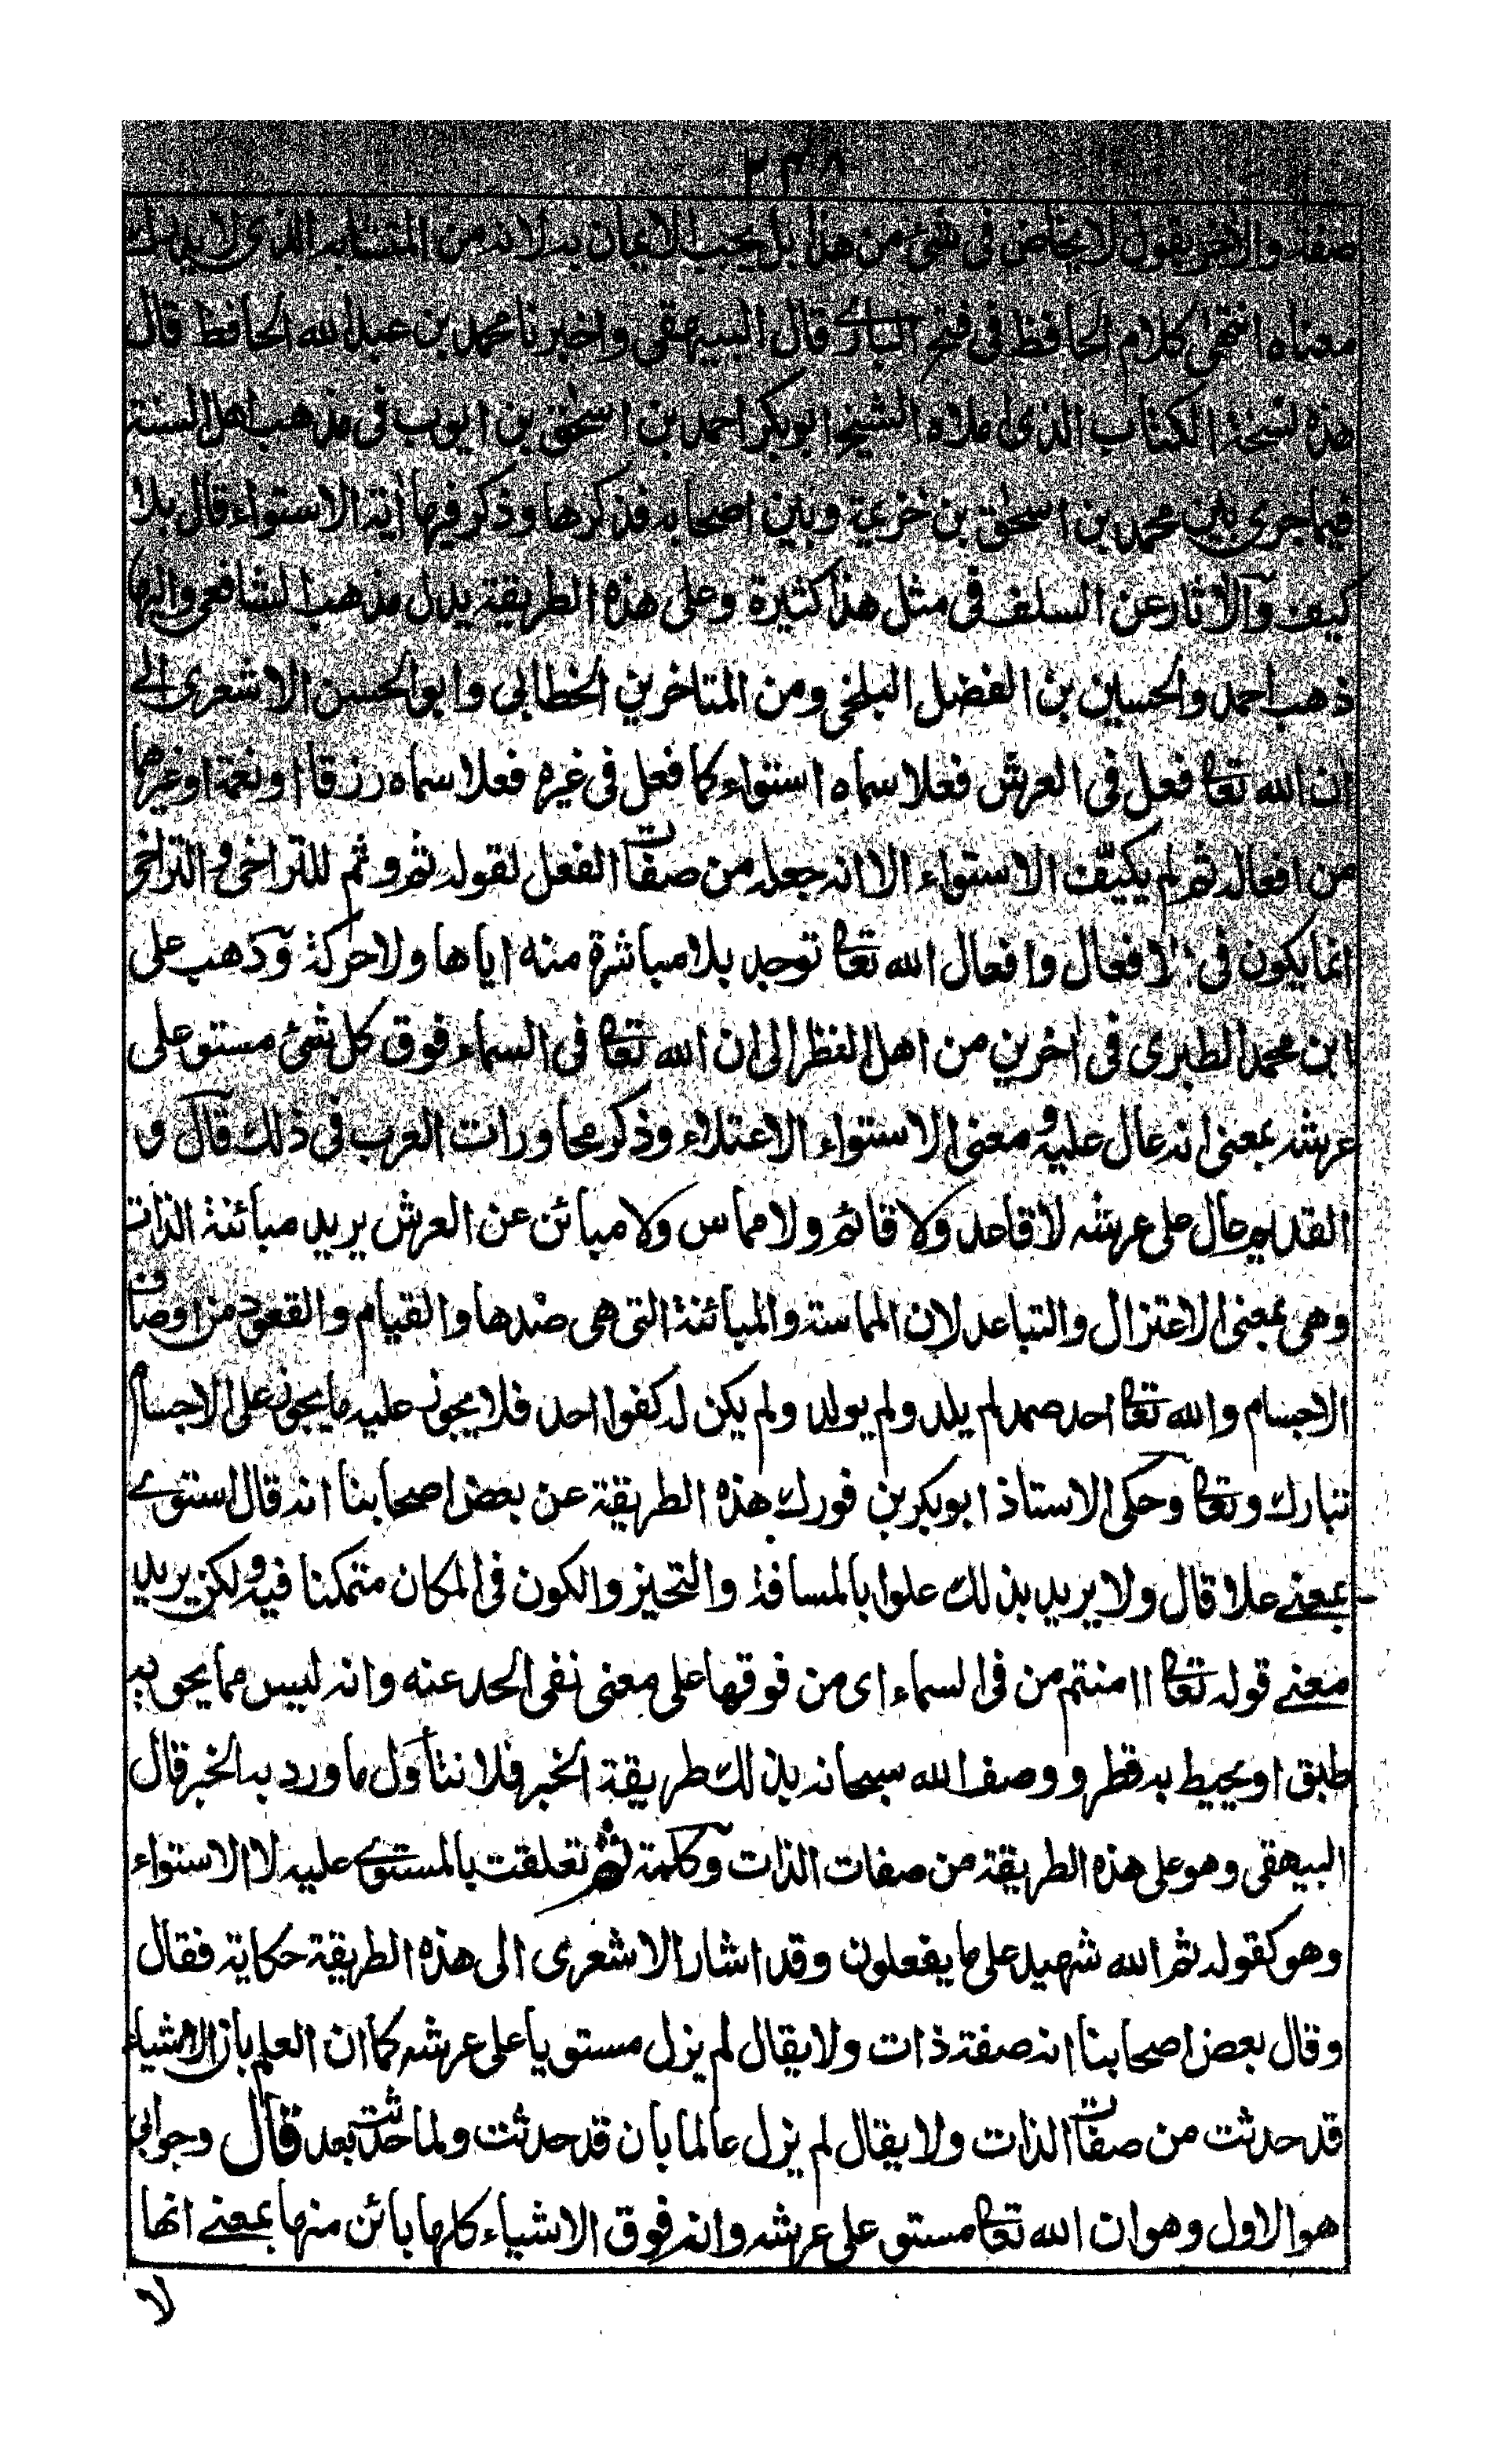 ٢٣٨
صفة والآخر يقول لا يخاض فى شئ من هذا بل يجب الايمان به لانه من المتشابه الذى لا يدرك
معناه انتهى كلام الحافظ فى فتح البارے قال البيهقى واخبرنا محمد بن عبد الله الحافظ قال
هذه نسخة الكتاب الذى املاه الشيخ ابو بكر احمد بن اسحق بن ايوب فى مذهب اهل السنة
فيما جرى بين محمد بن اسحق بن خزيمة وبين اصحابه فذكرها وذكر فيها آية الاستواء قال بلا
كيف والآثار عن السلف فى مثل هذا كثيرة وعلى هذه الطريقة يدل مذهب الشافعى واليها
ذهب احمد والحسين بن الفضل البلخى ومن المتاخرين الخطابى وابو الحسن الاشعرى الى
ان الله تعا فعل فى العرش فعلا سماه استواء كما فعل فى غيره فعلا سماه رزقا او نعمة او غيرهما
من افعاله ثم لم يكيّف الاستواء الا انه جعله من صفات الفعل لقوله ثم وثم للتراخى والتراخى
انما يكون فى الافعال وافعال الله تعا توجد بلا مباشرة منه اياها ولا حركة وذهب على
ابن محمد الطبرى فى آخرين من اهل النظر الى ان الله تعا فى السماء فوق كل شئ مستو على
عرشه بمعنى انه عال عليه ومعنى الاستواء الاعتلاء وذكر محاورات العرب فى ذلك قال و
القديم عال على عرشه لا قاعد ولا قائم ولا مماس ولا مبائن عن العرش يريد مبائنة الذات
وهى بمعنى الاعتزال والتباعد لان المماسة والمبائنة التى هى ضدها والقيام والقعود من اوصاف
الاجسام والله تعا احد صمد لم يلد ولم يولد ولم يكن له كفوا احد فلا يجوز عليه ما يجوز على الاجسام
تبارك وتعا وحكى الاستاذ ابو بكر بن فورك هذه الطريقة عن بعض اصحابنا انه قال استوے
بمعنے علا قال ولا يريد بذلك علوا بالمسافة والتحيز والكون فى المكان متمكنا فيه ولكن يريد
معنے قوله تعا اامنتم من فى السماء اى من فوقها على معنى نفى الحد عنه وانه ليس مما يحويه
طبق او يحيط به قطر ووصف الله سبحانه بذلك طريقة الخبر فلا نتأول ما ورد به الخبر قال
البيهقى وهو على هذه الطريقة من صفات الذات وكلمة ثم تعلقت بالمستوے عليه لا الاستواء
وهو كقوله ثم الله شهيد على ما يفعلون وقد اشار الاشعرى الى هذه الطريقة حكاية فقال
وقال بعض اصحابنا انه صفة ذات ولا يقال لم يزل مستويا على عرشه كما ان العلم بان الاشياء
قد حدثت من صفات الذات ولا يقال لم يزل عالما بان قد حدثت ولما حدثت بعد قال وجوابى
هو الاول وهو ان الله تعا مستو على عرشه وانه فوق الاشياء كلها بائن منها بمعنے انها
لا